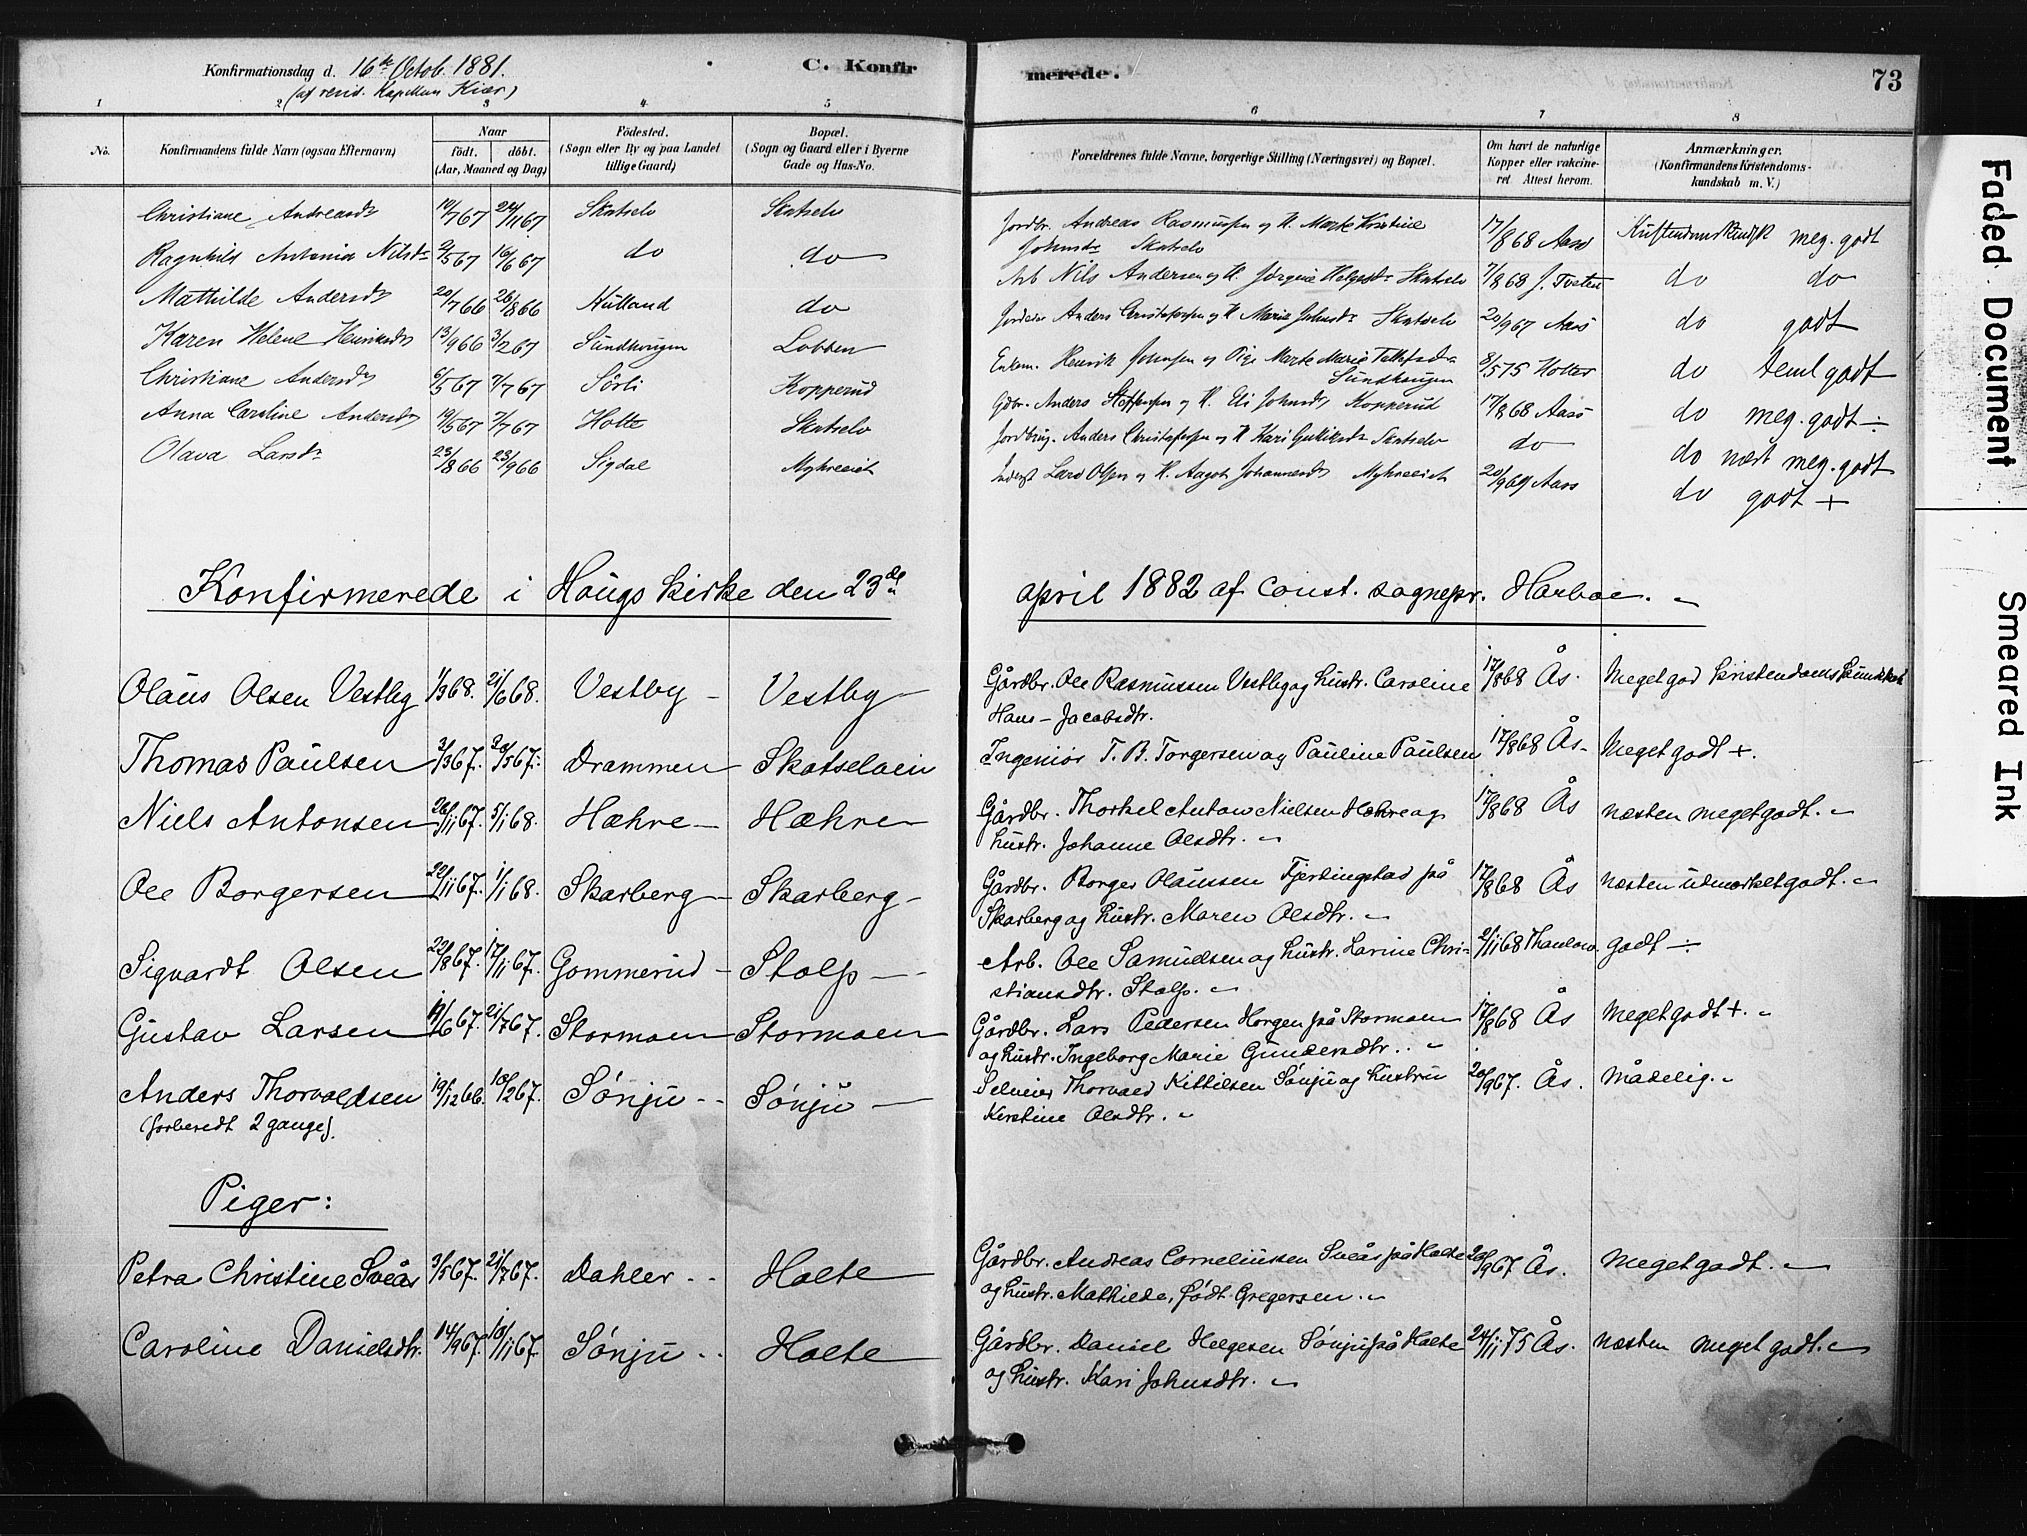 Konfirmationsdag d. 16de Octob. 1881.
(af resid. Kapellan Kiær)
C. Konfirmerede.
73
1 2 3 4 5 6 7 8
No.
Konfirmandens fulde Navn (ogsaa Efternavn)
Naar
födt. döbt.
(Aar, Maaned og Dag)
Födested.
(Sogn eller By og paa Landet
tillige Gaard)
Bopæl.
(Sogn og Gaard eller i Byerne
Gade og Hus-No.
Forældrenes fulde Navne, borgerlige Stilling (Næringsvei) og Bopæl.
Om havt de naturlige
Kopper eller vakcine-
ret. Attest herom.
Anmærkninger.
(Konfirmandens Kristendoms-
kundskab m. V.)
Christiane Andreasdr 19/7 67 24/11 67 Skatselv Skatselv Jordbr. Andreas Rasmussen og H. Marte Kristine
Johnsdr Skatselv 17/8 68 Aass meg. godt
Ragnhild Antonia Nilsdr 9/5 67 16/6 67 do do Arb Nils Andersen og H. Skatselv 7/8 68 J. Tveten do do
Mathilde Andersdr 20/7 66 26/8 66 do Anders Christophersen og H. Marie Johnsdr Skatselv 20/9 67 Aass do godt
Karen Helene Henriksdr 13/9 66 3/2 67 Sundhaugen Lobben Enkem. Henrik Johnsen og Pige Marte Marie
Sundhaugen 8/5 75 Holter do teml godt
Christiane Andersdr 6/5 67 7/7 67 Sörli Kopperud Gdbr. Anders Steffensen og H. Eli Johnsdr Kopperud 17/8 68 Aass do meg. godt ÷
Anna Caroline Andersdr 19/5 67 7/7 67 Holte Skatselv Anders Christophersen og H Kari Gulliksdr Skatselv do do næst meg. godt
Olava Larsdr 25/8 66 23/9 66 Sigdal Myhreeiet Lars Olsen og H. Aagot Johannesdr Myhreeiet 20/9 69 Aass do godt +
Konfirmerede i Haugs kirke den 23de april 1882 af const. sognepr. Harboe.
Olaus Olsen Vestby 1/3 68. 21/6 68. Vestby Vestby Gårdbr. Ole Rasmussen Vestby og hustr. Caroline
Hans-Jacobsdtr. 17/8 68 Ås. Meget god kristendomskundskab
Thomas Paulsen 3/3 67. 30/5 67. Drammen Skotselven Ingeniör T. B. Torgersen og Pauline Paulsen 17/8 68 Ås. Meget godt +.
Niels Antonsen 26/11 67. 5/1 68. Hæhre Hæhre Gårdbr. Thorkel Anton Nielsen Hæhre og
hustr. Johanne Olsdtr. 17/8 68 Ås næsten meget godt.
Ole Borgersen 22/11 67. 1/1 68. Skarberg Skarberg Gårdbr. Borger Olaussen Fjerdingstad på
Skarberg og hustr. Maren Olsdtr. 17/8 68 Ås næsten udmærket godt.
Sigvardt Olsen 22/8 67. 17/11 67. Gommerud Stolp Arb. Ole Samuelsen og hustr. Larine Chri-
stiansdtr. Stolp. 2/11 68 Thaulow. godt ÷
Gustav Larsen 19/6 67. 21/7 67. Stormoen Stormoen Gårdbr. Lars Pedersen Horgen på Stormoen
og hustr. Ingeborg Marie Gundersdtr. 17/8 68 Ås Meget godt +.
Anders Thorvaldsen 19/12 66. 10/2 67. Sønju Sønju Selveier Thorvald Kittilsen Sønju og hustru
(forberedt 2 gange). Kirstine Olsdtr. 20/9 67. Ås. Mådelig.
Piger:
Petra Christine Sveås 3/5 67. 21/7 67. Dahler Holte Gårdbr. Andreas Corneliussen Sveås på Holte
og hustr. Mathilde, født Gregersen. 20/9 67 Ås. Meget godt.
Caroline Danielsdtr. 14/9 67. 10/11 67. Sønju Holte Gårdbr. Daniel Helgesen Sønju på Holte
og hustr. Kari Johnsdtr. 24/11 75 Ås. næsten meget godt.
Faded Document
Smeared Ink